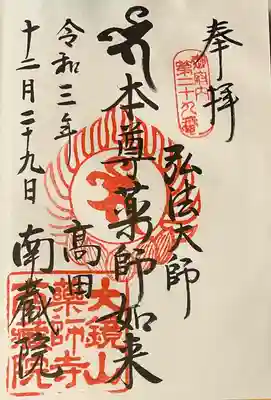 奉拝
御府内
第二十九番
弘法大師
本尊薬師如来
高田
南蔵院
令和三年
十二月二十九日
大鏡山
薬師寺
南蔵院